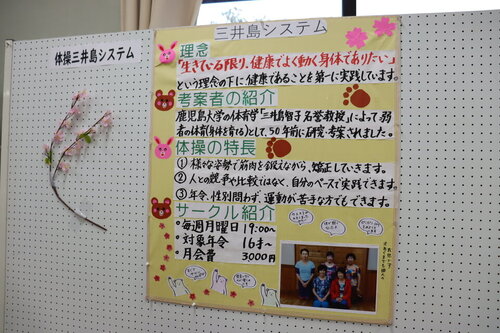 体操三井島システム
三井島システム
理念
「生きている限り、健康でよく動く身体でありたい」
という理念の下に健康であることを第一に実践しています。
考案者の紹介
鹿児島大学の体育学「三井島智子名誉教授」によって弱
者の体育(身体を育てる)として、50年前に研究・考案されました。
体操の特長
① 様々な姿勢で筋肉を鍛えながら、矯正していきます。
② 人との競争や比較ではなく、自分のペースで実践できます。
③ 年令、性別問わず、運動が苦手な方もできます。
サークル紹介
・毎週月曜日 19:00〜
・対象年令 16才〜
・月会費 3000円